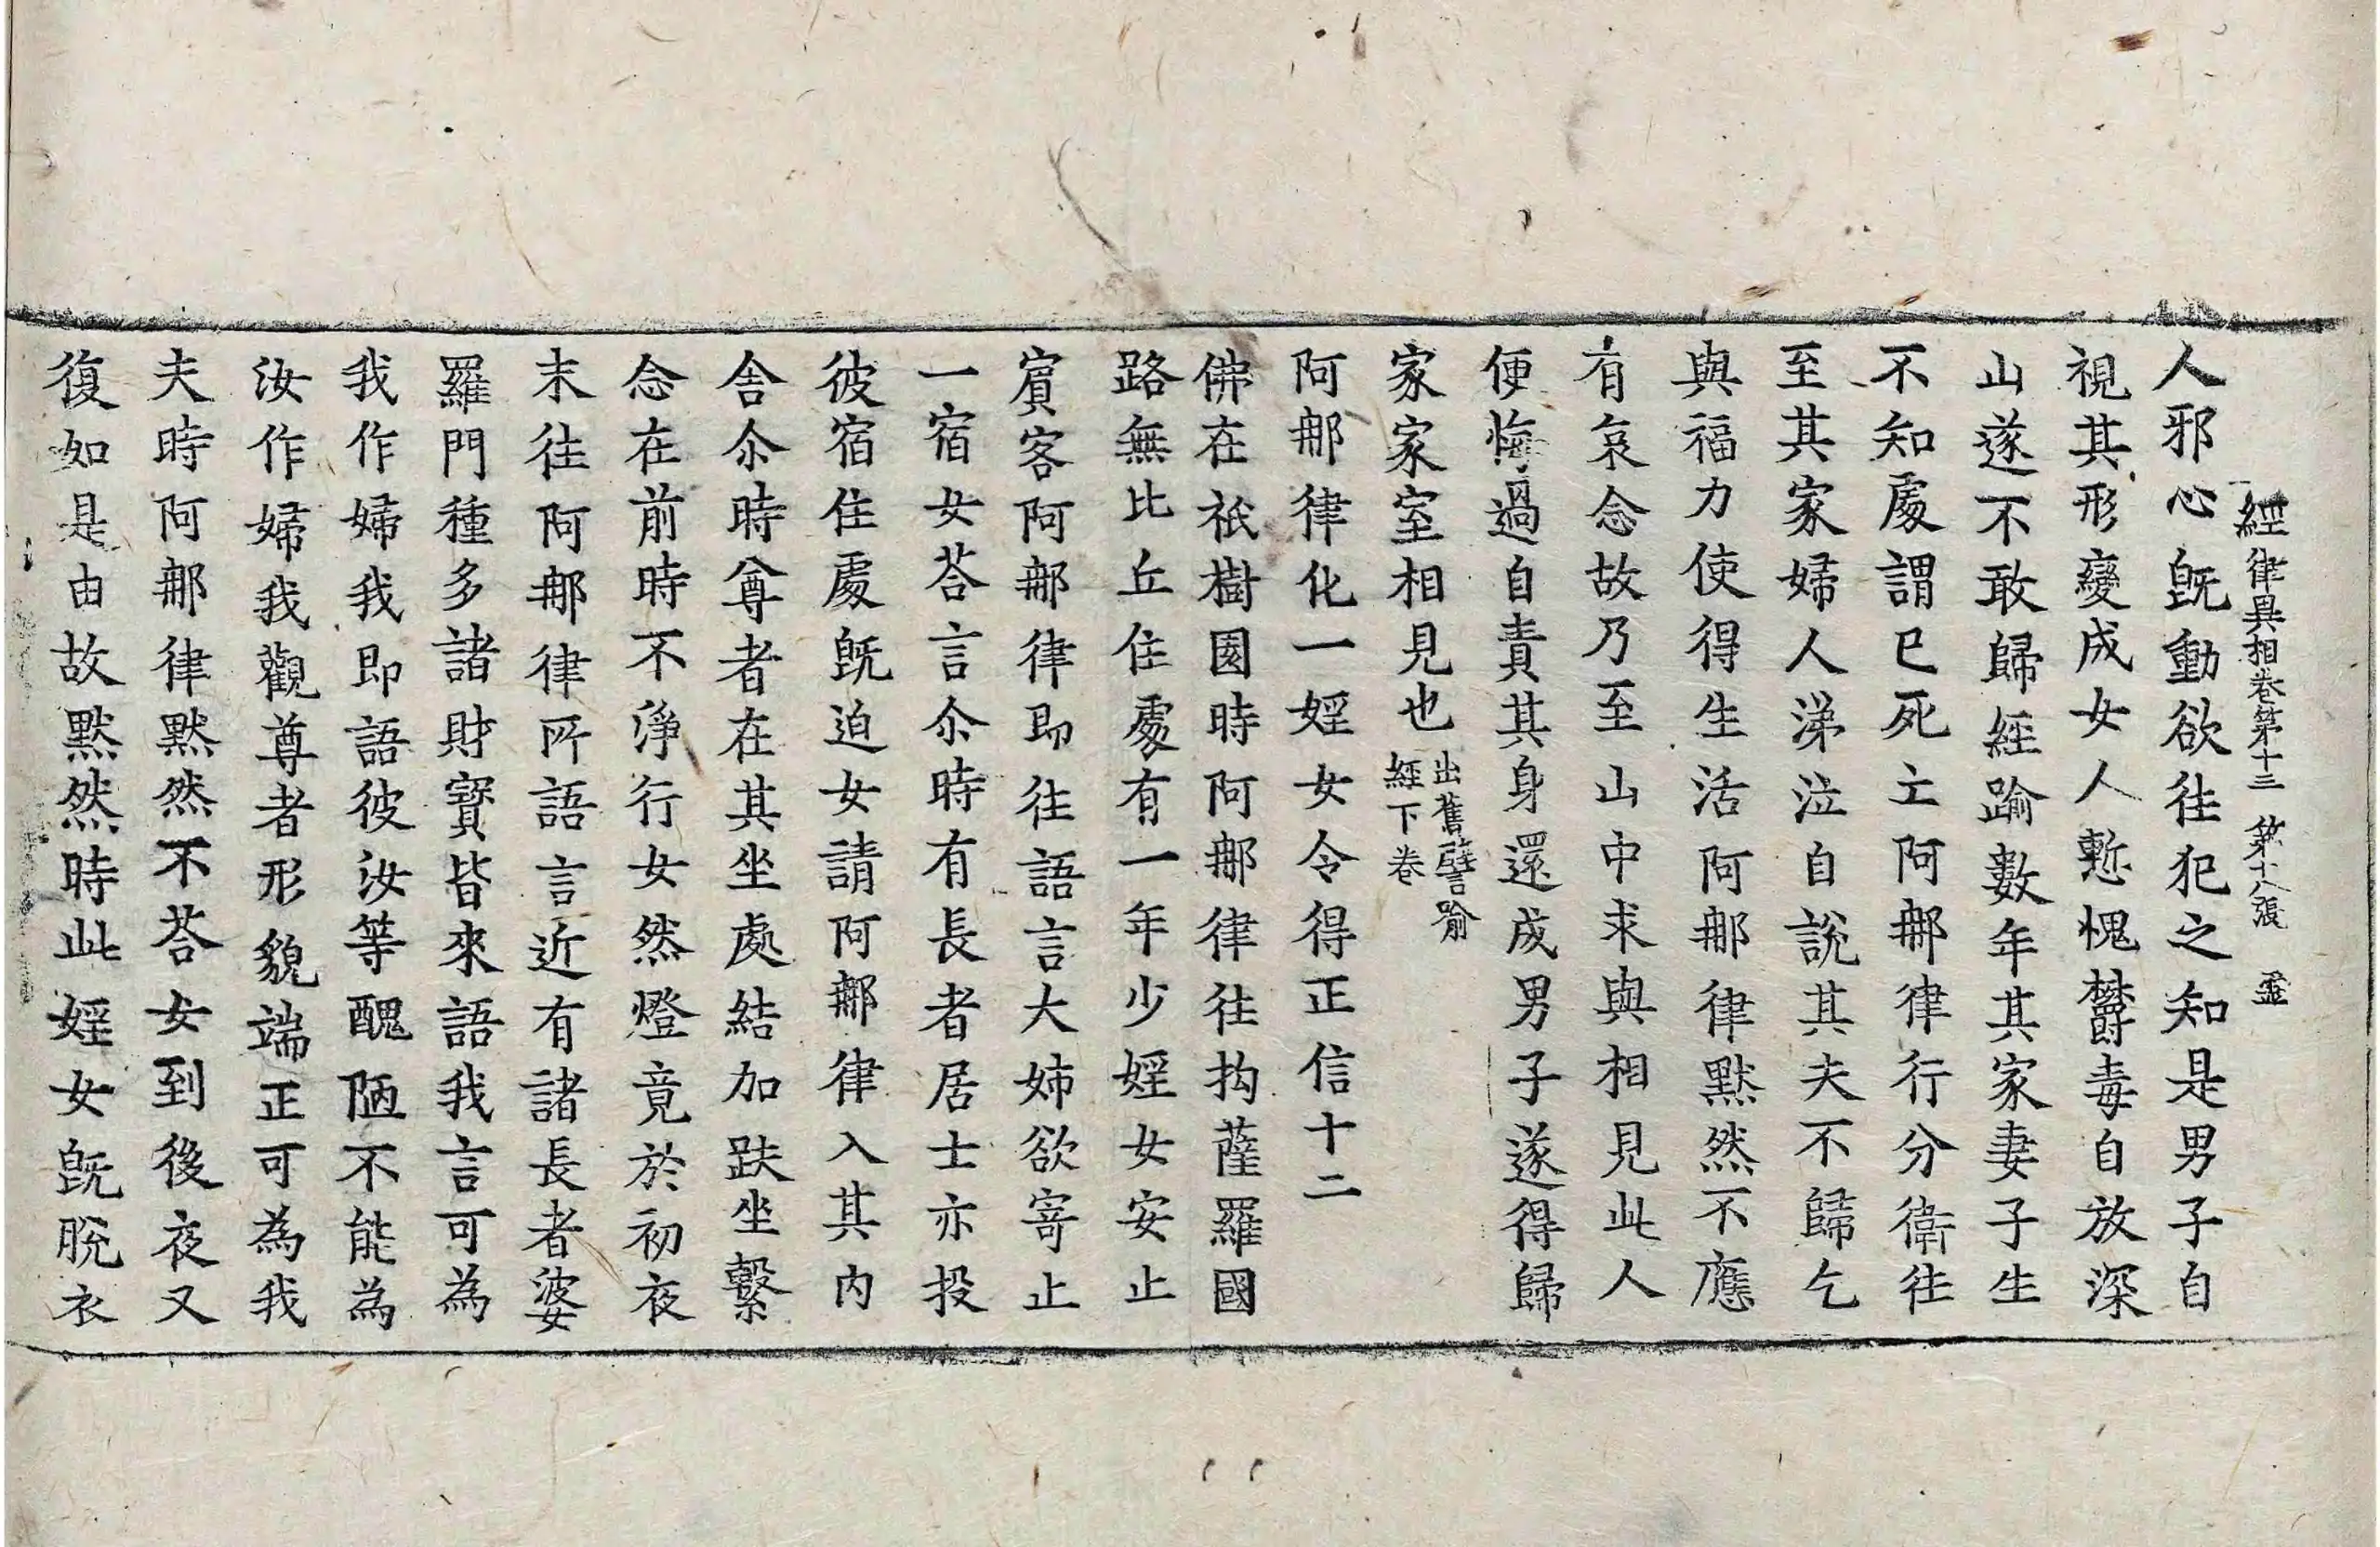 經律異相卷第十三 第十八張 㚑
人邪心旣動欲往犯之知是男子自
視其形變成女人慙愧欝毒自放深
山遂不敢歸經踰數年其家妻子生
不知處謂已死亡阿那律行分衛往
至其家婦人涕泣自說其夫不歸乞
與福力使得生活阿那律默然不應
有哀念故乃至山中求與相見此人
便悔過自責其身還成男子遂得歸
家家室相見也出舊譬喻經下卷
阿那律化一婬女令得正信十二
佛在祇樹園時阿那律往拘薩羅國
路無比丘住處有一年少婬女安止
賓客阿那律即往語言大姊欲寄止
一宿女荅言尒時有長者居士亦投
彼宿住處旣迫女請阿那律入其內
舍尒時尊者在其坐處結加趺坐繫
念在前時不淨行女然燈竟於初夜
末往阿那律所語言近有諸長者婆
羅門種多諸財寶皆來語我言可為
我作婦我即語彼汝等醜陋不能為
汝作婦我觀尊者形貌端正可為我
夫時阿那律默然不荅女到後夜又
復如是由故默然時此婬女旣脫衣